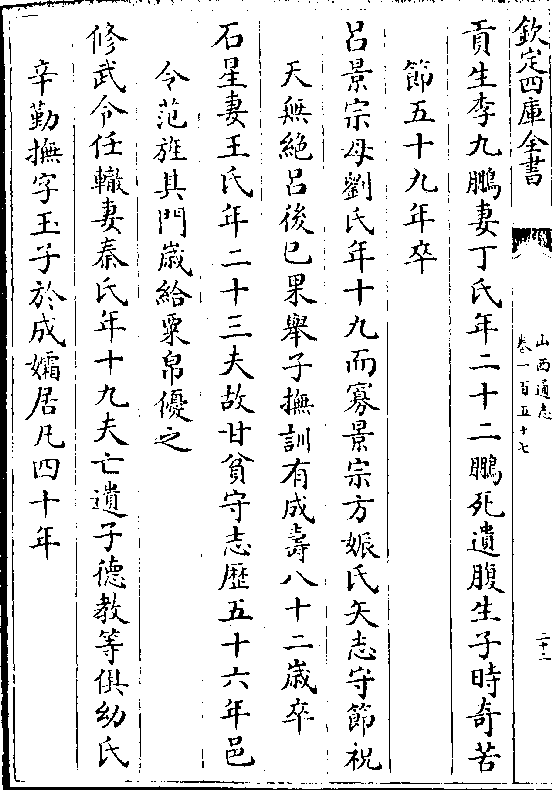 欽定四庫全書
山西通志
卷一百五十七
二十二
貢生李九鵬妻丁氏年二十二鵬死遺腹生子時奇苦
節五十九年卒
呂景宗母劉氏年十九而寡景宗方娠氏矢志守節祝
天無絶呂後巳果舉子撫訓有成壽八十二歲卒
石星妻王氏年二十三夫故甘貧守志歷五十六年邑
令范旌其門歲給粟帛優之
修武令任轍妻秦氏年十九夫亡遺子德教等俱幼氏
辛勤撫字玉子於成孀居凡四十年